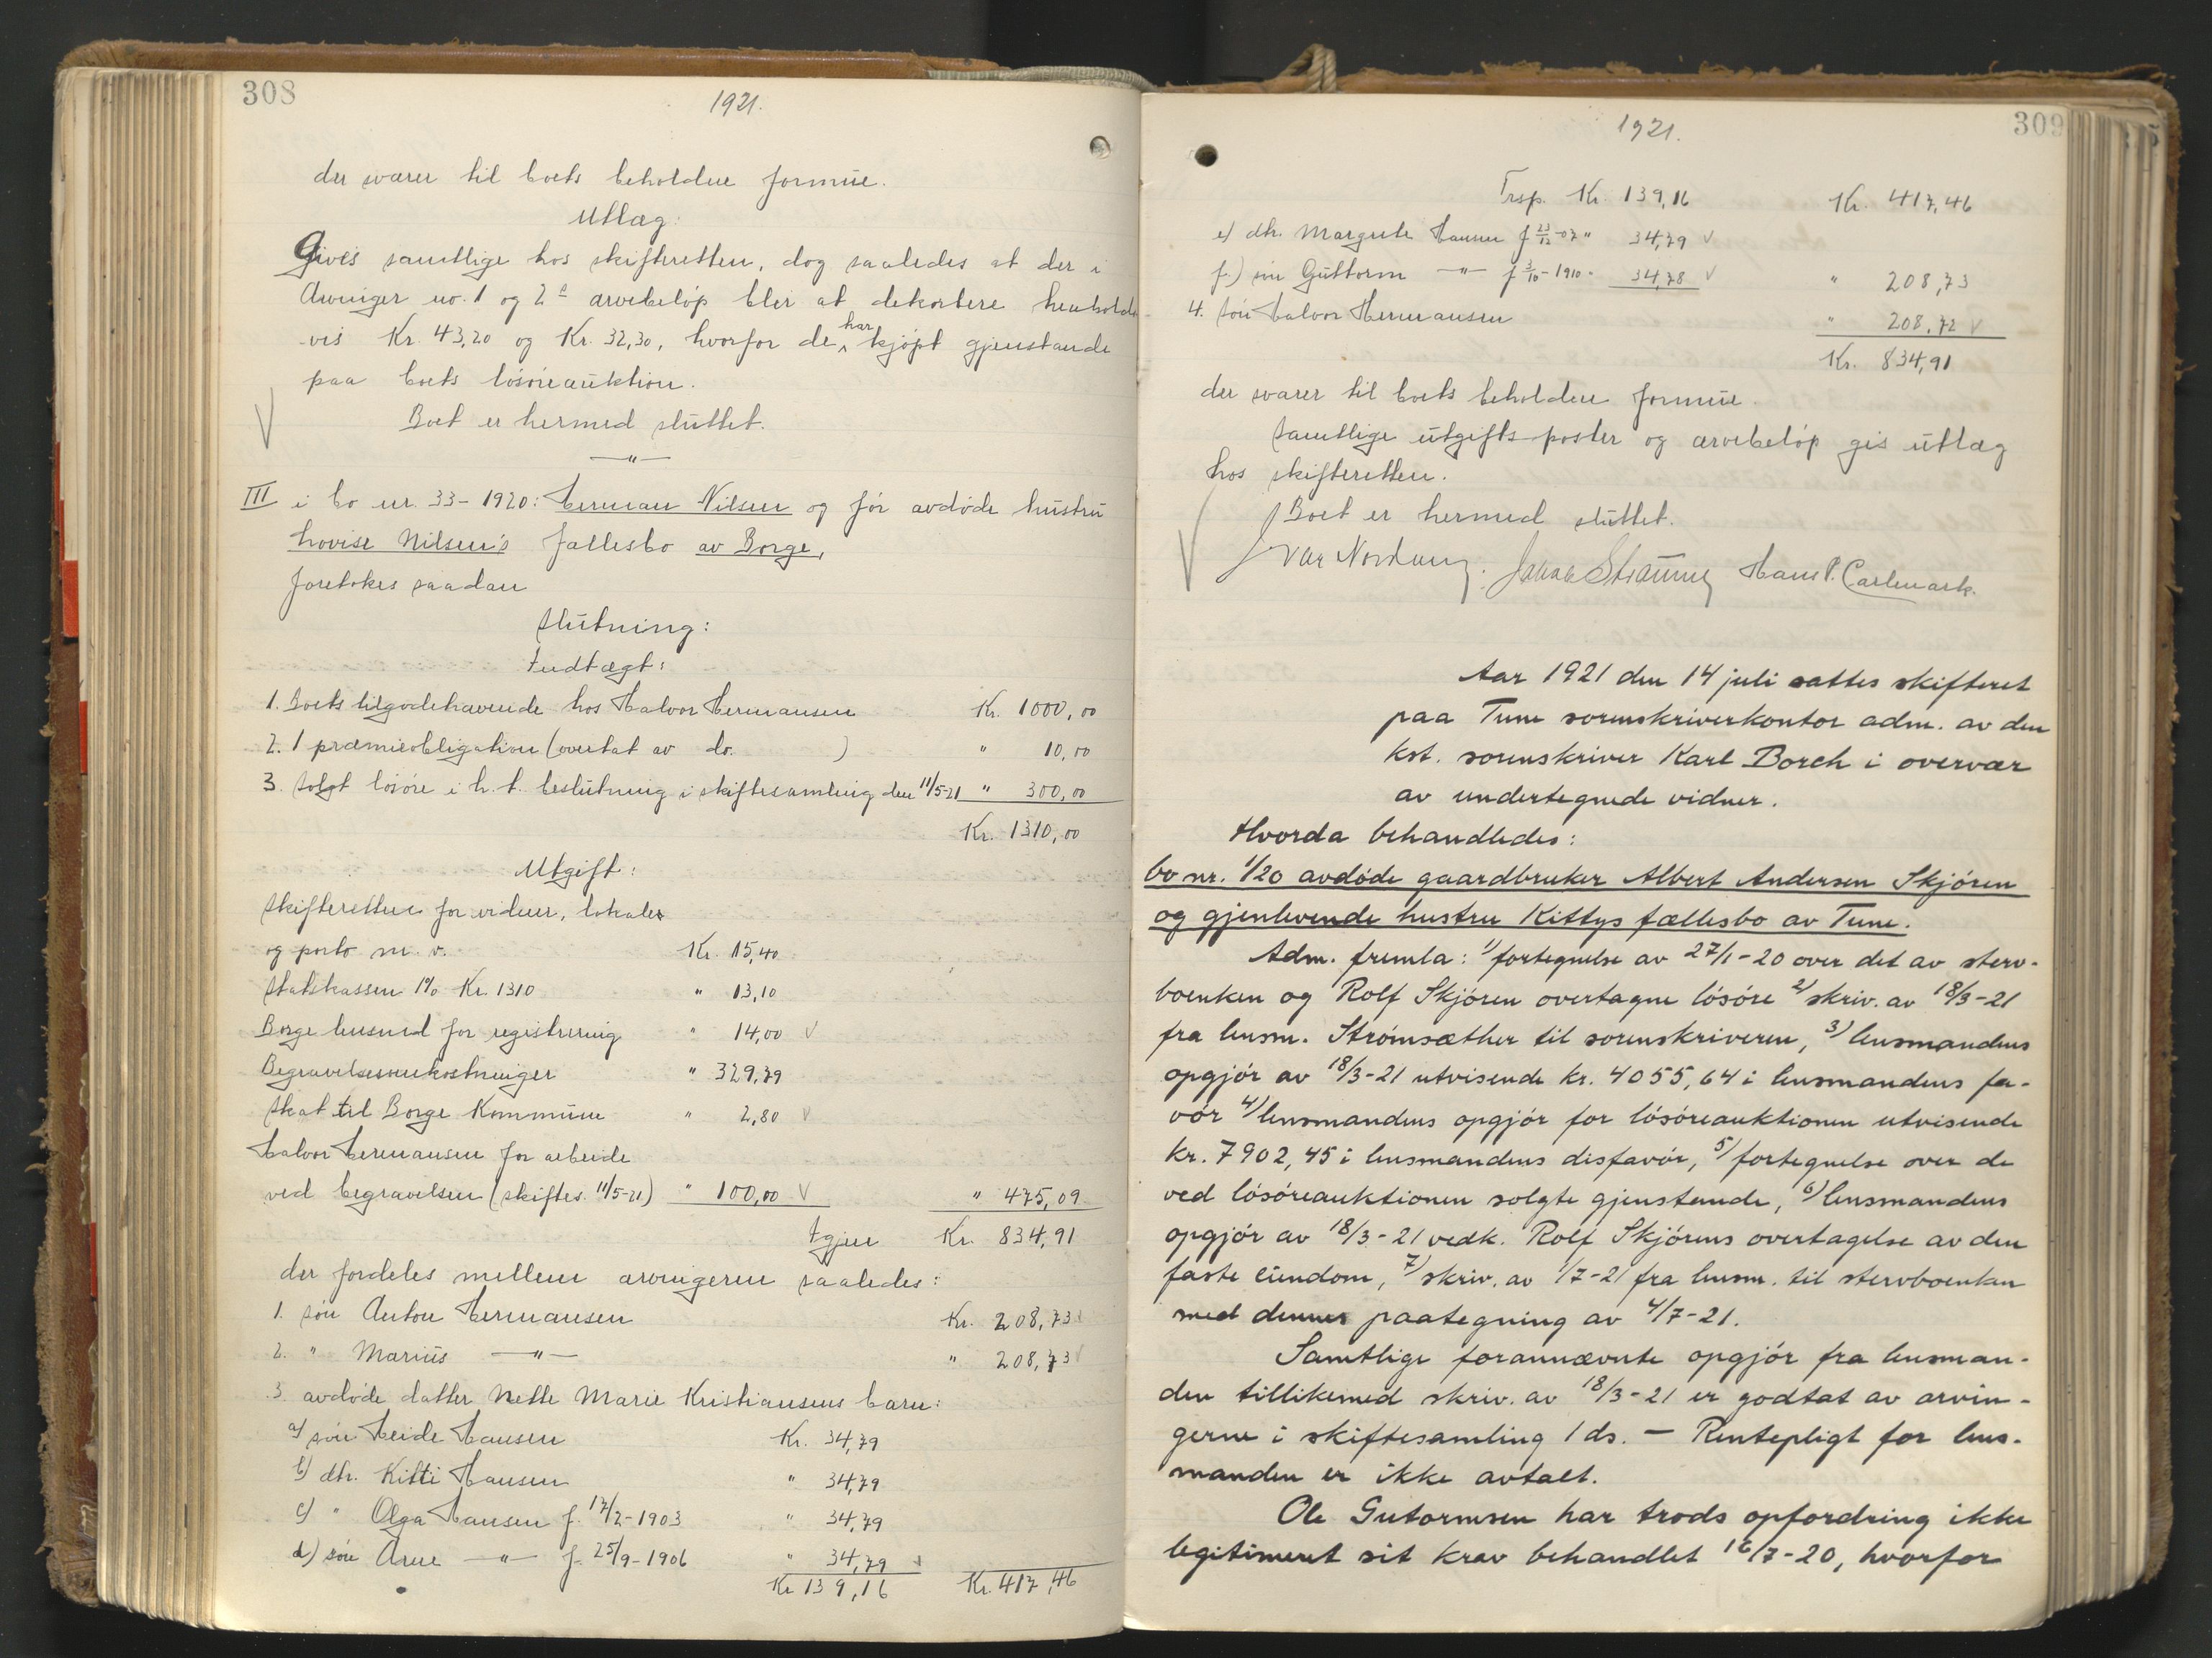 308
1921.
der svarer til boets beholdne formue.
Utlæg:
Gives samtlige hos skifteretten, dog saaledes at der i
Arvinger no. 1 og 2s arvebeløp blir at dekortere henholds-
vis Kr. 43,20 og Kr. 32,30, hvorfor de har kjøpt gjenstande
paa boets løsøreauktion.
Boet er hermed sluttet.
—"—
III i bo nr. 33-1920: Herman Nilsen og før avdøde hustru
hovise Nilsen's fællesbo av Borge,
foretokes saadan
Slutning:
Indtægt:
1. Boets tilgodehavende hos Halvor Hermansen Kr. 1000,00
2. 1 præmieobligation (overtat av do. ) " 10,00
3. Solgt løsøre i h. t. beslutning i skiftesamling den 11/5-21 " 300,00
Kr. 1310,00
Utgift:
Skifteretten for vidner, lokaler
og porto m. v. Kr. 15,40
Statskassen 1% Kr. 1310 " 13,10
Borge lensmd for registrering " 14,00 V
Begravelsesomkostninger " 329,79
Skat til Borge Kommune " 2,80 V
Halvor Hermansen for arbeide
ved begravelsen (skiftes. 11/5-21) " 100,00 V " 475,09
Igjen Kr. 834,91
der fordeles mellem arvingerne saaledes:
1. søn Anton Hermansen Kr. 208,73
2. " Marius —"— " 208,73
3. avdøde datter Nette Marie Kristiansens barn:
a) søn Heide Hansen Kr. 34,79
b) dtr. Kitti Hansen " 34,79
c) " Olga Hansen f. 17/2-1903 " 34,79
d) søn Arne —"— f. 25/9-1906 " 34,79 V
Kr 139,16 Kr. 417,46
309
1921.
Trsp. Kr. 139,16 Kr. 417,46
e) dtr. Margrete Hansen f 23/12-07 " 34,79 V
f.) søn Guttorm —"— f 3/10-1910 - 34,78 V " 208,73
4. søn Halvor Hermansen " 208,72 V
Kr. 834,91
der svarer til boets beholdne formue.
Samtlige utgifts-poster og arvebeløp gis utlæg
hos skifteretten.
Boet er hermed sluttet.
Ivar Nordang. Hans P. Carlmark.
Aar 1921 den 14 juli sattes skifteret
paa Tune sorenskriverkontor adm. av den
kst. sorenskriver Karl Borch i overvær
av undertegnede vidner.
Hvorda behandledes:
bo nr. 1/20 avdøde gaardbruker Albert Andersen Skjören
og gjenlevende hustru Kittys fællesbo av Tune.
Adm. fremla: 1) fortegnelse av 27/1-20 over det av sterv-
boenken og Rolf Skjören overtagne lösöre 2) skriv. av 18/3-21
fra lensm. Strömsæther til sorenskriveren, 3) lensmandens
opgjör av 18/3-21 utvisende kr. 4055,64 i lensmandens fa-
vör 4) lensmandens opgjör for lösöreauktionen utvisende
kr. 7902,45 i lensmandens disfavör, 5) fortegnelse over de
ved lösöreauktionen solgte gjenstande, 6) lensmandens
opgjör av 18/3-21 vedk. Rolf Skjörens overtagelse av den
faste eiendom, 7) skriv. av 1/7-21 fra lensm. til stervboenken
med dennes paategning av 4/7-21.
Samtlige forannævnte opgjör fra lensman-
den tillikemed skriv. av 18/3-21 er godtat av arvin-
gerne i skiftesamling 1 ds. — Rentepligt for lens-
manden er ikke avtalt.
Ole Gutormsen har trods opfordring ikke
legitimeret sit krav behandlet 16/7-20, hvorfor